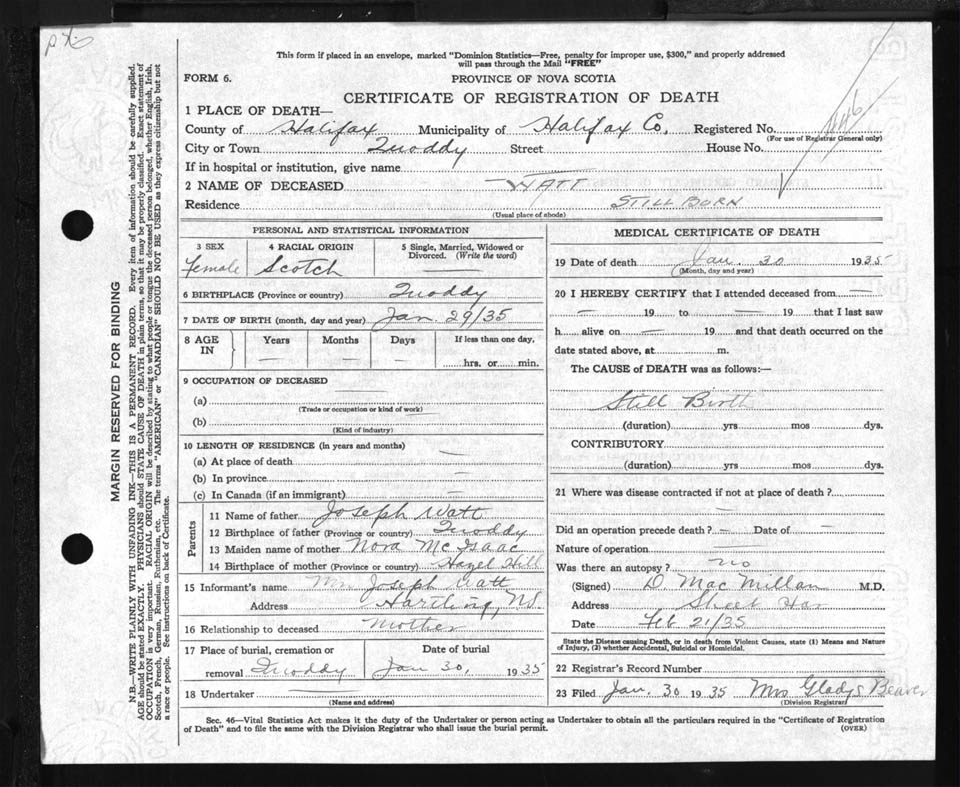 This form if placed in an envelope, marked "Dominion Statistics—Free, penalty for improper use, $300," and properly addressed
will pass through the Mail "FREE"
FORM 6.
PROVINCE OF NOVA SCOTIA
CERTIFICATE OF REGISTRATION OF DEATH
1 PLACE OF DEATH—
County of Halifax Municipality of Halifax Co. Registered No.
(For use of Registrar General only)
City or Town Quoddy Street House No.
If in hospital or institution, give name
2 NAME OF DECEASED —WATT
Residence STILL BORN
(Usual place of abode)
PERSONAL AND STATISTICAL INFORMATION
3 SEX 4 RACIAL ORIGIN 5 Single, Married, Widowed or Divorced. (Write the word)
Female Scotch —
6 BIRTHPLACE (Province or country) Quoddy
7 DATE OF BIRTH (month, day and year) Jan. 29/35
8 AGE IN Years Months Days If less than one day,
— — — hrs. or min.
9 OCCUPATION OF DECEASED
(a)
(Trade or occupation or kind of work)
(b)
(Kind of industry)
10 LENGTH OF RESIDENCE (in years and months)
(a) At place of death —
(b) In province —
(c) In Canada (if an immigrant) —
Parents
11 Name of father Joseph Watt
12 Birthplace of father (Province or country) Quoddy
13 Maiden name of mother Nora Mc Isaac
14 Birthplace of mother (Province or country) Hazel Hill
15 Informant's name Mrs Joseph Watt
Address Hartling, NS.
16 Relationship to deceased Mother
17 Place of burial, cremation or Date of burial
removal Quoddy Jan 30, 1935
18 Undertaker —
(Name and address)
MEDICAL CERTIFICATE OF DEATH
19 Date of death Jan. 30 1935
(Month, day and year)
20 I HEREBY CERTIFY that I attended deceased from —
— 19 to — 19 that I last saw
h alive on — 19 and that death occurred on the
date stated above, at m.
The CAUSE of DEATH was as follows:—
Still Birth
(duration) yrs mos dys.
CONTRIBUTORY
(duration) yrs mos dys.
21 Where was disease contracted if not at place of death?
Did an operation precede death? — Date of —
Nature of operation —
Was there an autopsy? no
(Signed) D. MacMillan M.D.
Address Sheet Har
Date Feb 21/35
State the Disease causing Death, or in death from Violent Causes, state (1) Means and Nature
of Injury, (2) whether Accidental, Suicidal or Homicidal.
22 Registrar's Record Number
23 Filed Jan. 30 1935 Mrs Gladys Beaver
(Division Registrar)
Sec. 46—Vital Statistics Act makes it the duty of the Undertaker or person acting as Undertaker to obtain all the particulars required in the "Certificate of Registration
of Death" and to file the same with the Division Registrar who shall issue the burial permit.
(OVER)
MARGIN RESERVED FOR BINDING
N.B.—WRITE PLAINLY WITH UNFADING INK—THIS IS A PERMANENT RECORD. Every item of information should be carefully supplied.
AGE should be stated EXACTLY. PHYSICIANS should STATE CAUSE OF DEATH in plain terms, so that it may be properly classified. Exact statement of
OCCUPATION is very important. RACIAL ORIGIN will be described by stating to what people or tongue the deceased person belonged, whether English, Irish,
Scotch, French, German, Russian, Ruthenian, etc. The terms "AMERICAN" or "CANADIAN" SHOULD NOT BE USED as they express citizenship but not
a race or people. See instructions on back of Certificate.